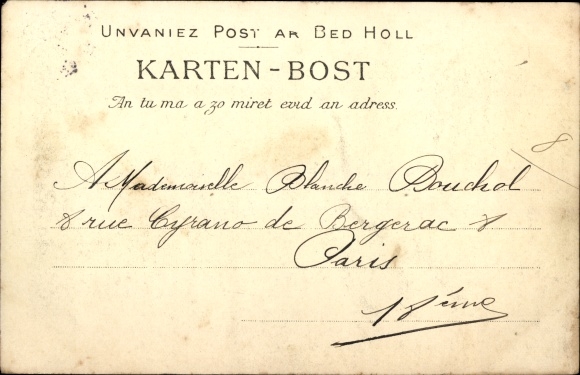 UNVANIEZ POST AR BED HOLL
KARTEN-BOST
An tu ma a zo miret evid an adress.
8
A Mademoiselle Blanche Bouchot
8 rue Cyrano de Bergerac 8
Paris
18ème